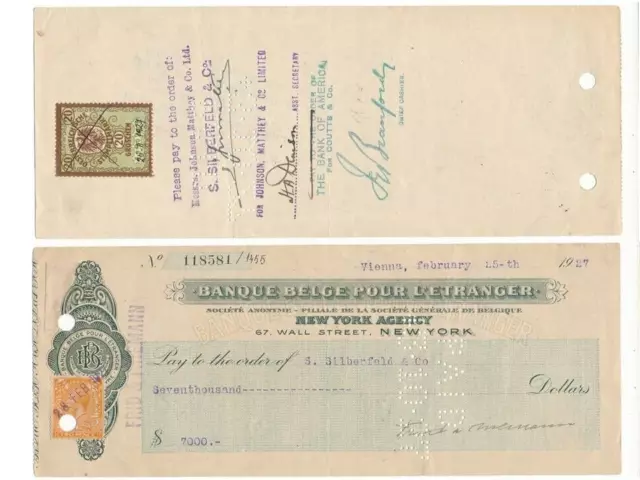 Please pay to the order of:
Messrs. Johnson Matthey & Co. Ltd.
S. SILBERFELD & Co
FOR JOHNSON, MATTHEY & CO LIMITED
ASST. SECRETARY
PAY TO THE ORDER OF
THE BANK OF AMERICA,
FOR COUTTS & Co.
CHIEF CASHIER.
20
20
No 118581/456
Vienna, february 15-th 1927
BANQUE BELGE POUR L'ETRANGER
SOCIÉTÉ ANONYME - FILIALE DE LA SOCIÉTÉ GÉNÉRALE DE BELGIQUE
NEW YORK AGENCY
67, WALL STREET, NEW YORK
Pay to the order of S. Silberfeld & Co
Seventhousand---------------- Dollars
$ 7000.-
BANQUE BELGE POUR L'ETRANGER